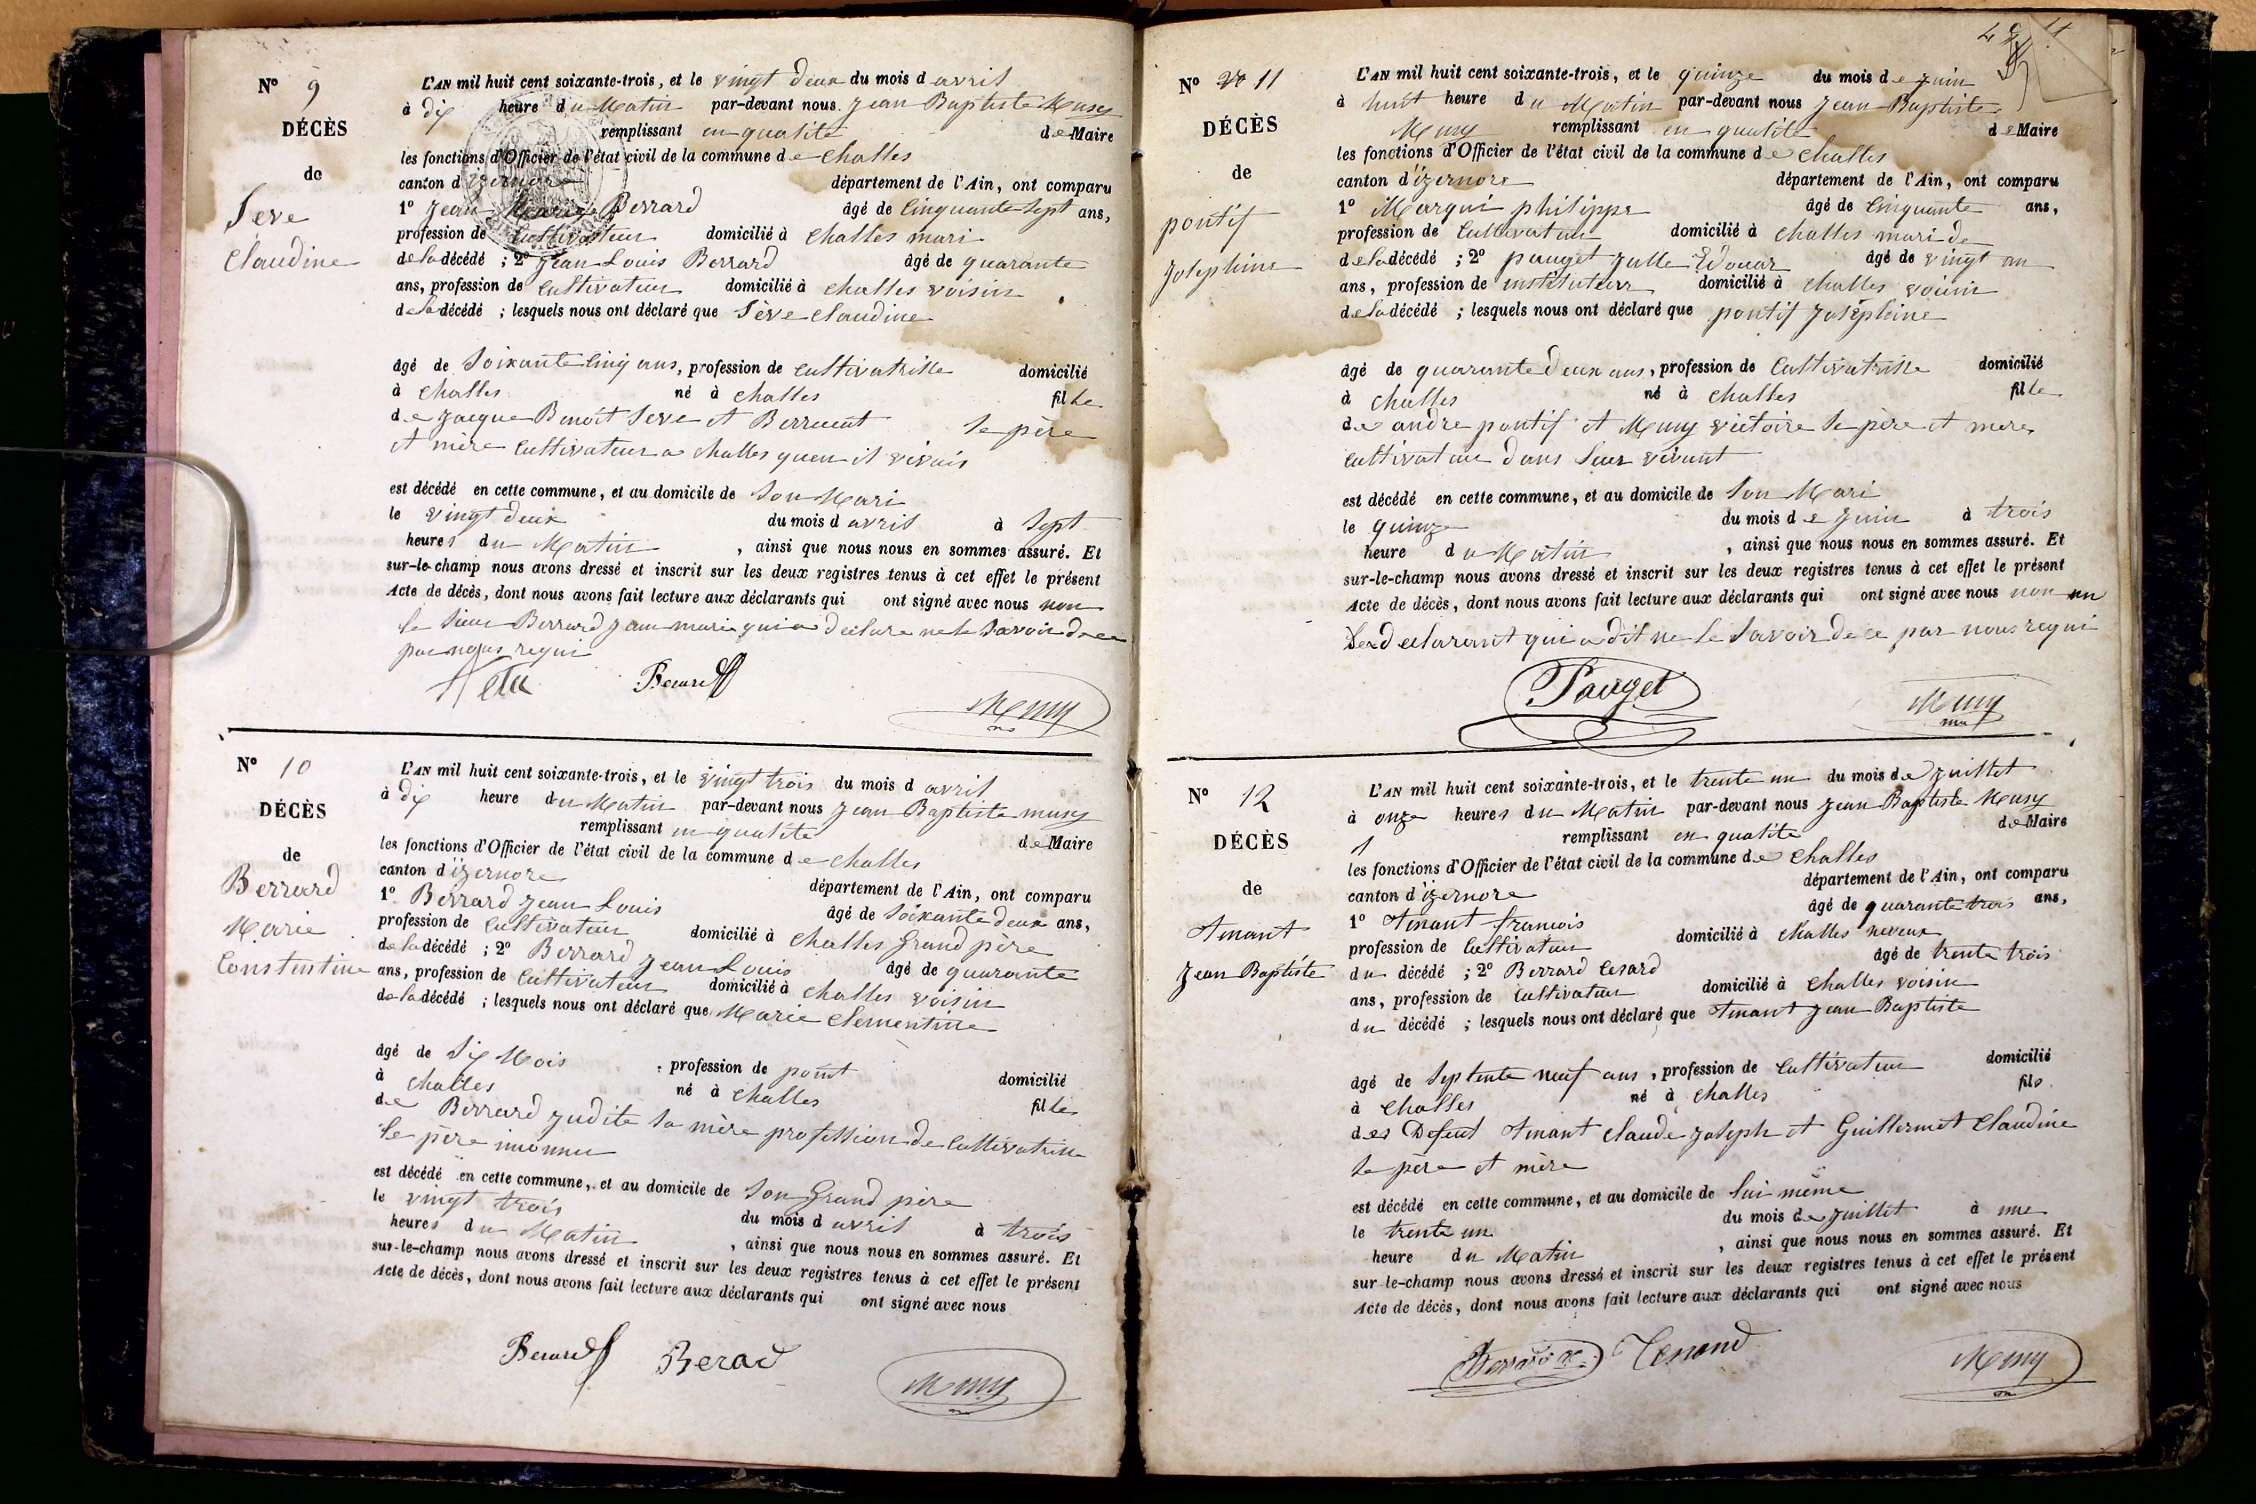 Nº 9
DÉCÈS
de
Seve
Claudine
L'AN mil huit cent soixante-trois, et le vingt deux du mois d avril
à dix heure du Matin par-devant nous Jean Baptiste Musy
remplissant en qualité de Maire
les fonctions d'Officier de l'état civil de la commune de Challes
canton d'izernore département de l'Ain, ont comparu
1º Jean Marie Berrard âgé de Cinquante Sept ans,
profession de Cultivateur domicilié à Challes mari
de la décédé ; 2º Jean Louis Berrard âgé de quarante
ans, profession de Cultivateur domicilié à Challes voisin
de la décédé ; lesquels nous ont déclaré que Sève Claudine
âgé de Soixante Cinq ans, profession de Cultivatrisse domicilié
à Challes né à Challes fille
de Jacque Benoit Seve et Berruent le père
et mère Cultivateur a Challes quen il vivais
est décédé en cette commune, et au domicile de Son Mari
le vingt deux du mois d avril à Sept
heures du Matin , ainsi que nous nous en sommes assuré. Et
sur-le-champ nous avons dressé et inscrit sur les deux registres tenus à cet effet le présent
Acte de décès, dont nous avons fait lecture aux déclarants qui ont signé avec nous non
le Sieur Berrard Jean marie qui a declare ne le Savoir de ce
par nous requi
Berard Musy
Nº 10
DÉCÈS
de
Berrard
Marie
Constentine
L'AN mil huit cent soixante-trois, et le vingt trois du mois d avril
à dix heure du Matin par-devant nous Jean Baptiste musy
remplissant en qualité de Maire
les fonctions d'Officier de l'état civil de la commune de Challes
canton d'izernore département de l'Ain, ont comparu
1º Berrard Jean Louis âgé de Soixante deux ans,
profession de Cultivateur domicilié à Challes Grand père
de la décédé ; 2º Berrard Jean Louis âgé de quarante
ans, profession de Cultivateur domicilié à Challes voisin
de la décédé ; lesquels nous ont déclaré que Marie Clementine
âgé de Six Mois , profession de point domicilié
à Challes né à Challes fille
de Berrard Judite sa mère profession de Cultivatrisse
le père inconnu
est décédé en cette commune, et au domicile de Son Grand père
le vingt trois du mois d avril à trois
heures du Matin , ainsi que nous nous en sommes assuré. Et
sur-le-champ nous avons dressé et inscrit sur les deux registres tenus à cet effet le présent
Acte de décès, dont nous avons fait lecture aux déclarants qui ont signé avec nous
Berard Berad Musy
Nº 11
DÉCÈS
de
pontif
Josephine
L'AN mil huit cent soixante-trois, et le quinze du mois de Juin
à huit heure du Matin par-devant nous Jean Baptiste
Musy remplissant en qualité de Maire
les fonctions d'Officier de l'état civil de la commune de Challes
canton d'izernore département de l'Ain, ont comparu
1º Marqui philippe âgé de Cinquante ans,
profession de Cultivateur domicilié à Challes mari de
de la décédé ; 2º pauget Julle Edouar âgé de vingt an
ans, profession de instituteur domicilié à Challes voisin
de la décédé ; lesquels nous ont déclaré que pontif Joséphine
âgé de quarante deux ans, profession de Cultivatrisse domicilié
à Challes né à Challes fille
de andre pontif et Musy victoire le père et mere
Cultivateur dans Leur vivant
est décédé en cette commune, et au domicile de Son Mari
le quinze du mois de Juin à trois
heure du Matin , ainsi que nous nous en sommes assuré. Et
sur-le-champ nous avons dressé et inscrit sur les deux registres tenus à cet effet le présent
Acte de décès, dont nous avons fait lecture aux déclarants qui ont signé avec nous non un
declarant qui a dit ne le Savoir de ce par nous requi
Pauget Musy
Nº 12
DÉCÈS
de
Tenant
Jean Baptiste
L'AN mil huit cent soixante-trois, et le trente un du mois de Juillet
à onze heures du Matin par-devant nous Jean Baptiste Musy
remplissant en qualité de Maire
les fonctions d'Officier de l'état civil de la commune de Challes
canton d'izernore département de l'Ain, ont comparu
1º Tenant francois âgé de quarante trois ans,
profession de Cultivateur domicilié à Challes neveux
du décédé ; 2º Berrard Cesard âgé de trente trois
ans, profession de Cultivateur domicilié à Challes voisin
du décédé ; lesquels nous ont déclaré que Tenant Jean Baptiste
âgé de Septente neuf ans, profession de Cultivateur domicilié
à Challes né à Challes fils
des Defunt Tenant Claude Joseph et Guillermet Claudine
le père et mère
est décédé en cette commune, et au domicile de Lui même
le trente un du mois de Juillet à une
heure du Matin , ainsi que nous nous en sommes assuré. Et
sur-le-champ nous avons dressé et inscrit sur les deux registres tenus à cet effet le présent
Acte de décès, dont nous avons fait lecture aux déclarants qui ont signé avec nous
Tenand Musy